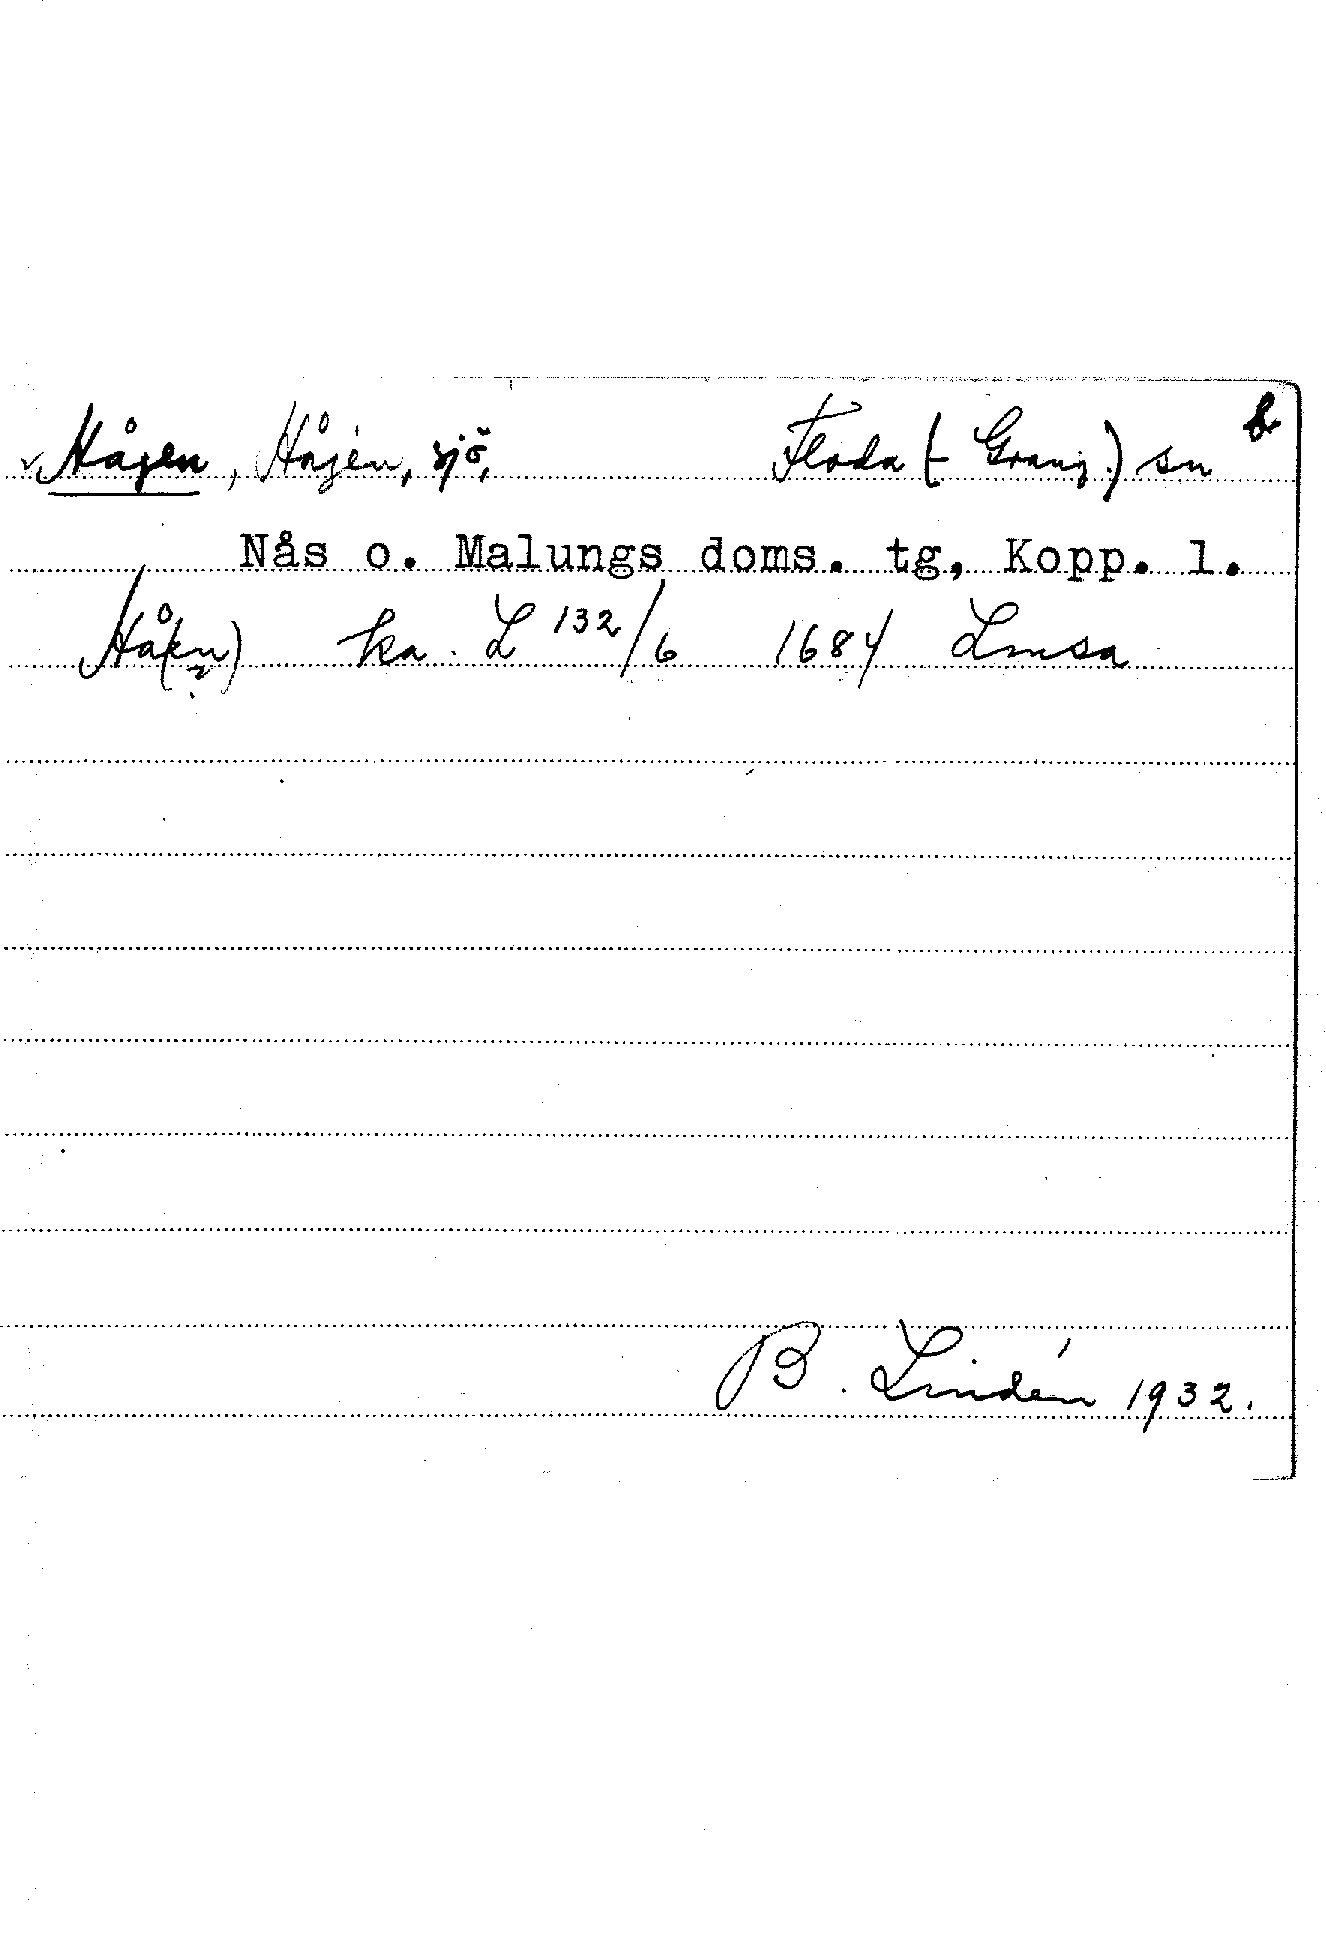 Hågen, Hågén, sjö, Floda (- Grang.) sn
Nås o. Malungs doms. tg, Kopp. l.
ka. L 132/6 1684 Lmsa
B. Lindén 1932.